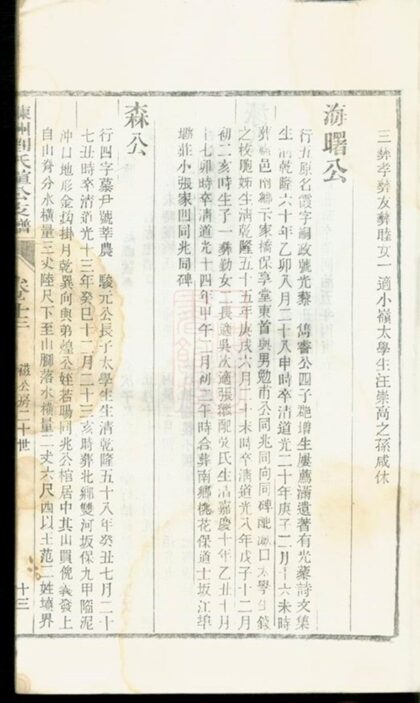 三彝孝彝友彝睦女一適小嶺太學生汪崇高之孫咸休
海曙公
行五原名霞字嗣政號光藜 雋睿公四子邑增生屢薦滿遺著有光藜詩文集
生清乾隆六十年乙卯八月二十八申時卒清道光二十年庚子二月十六未時
葬縣邑南鄉卞家橋保享堂東首與男勉甫公同兆同向同碑配 口太學生錢
之校胞姊生清乾隆五十五年庚戌六月 十未時卒清道光八年戊子十二月
初二亥時生子一彝勤女二長適吳次適張繼配吳氏生清嘉慶十年乙丑十月
十七卯時卒清道光十四年甲午二月初二午時合葬南鄉桃花保道士坂江埠
壩莊小張家凹同兆同碑
森公
行四字慕尹號莘農 駿元公長子太學生生清乾隆五十八年癸丑七月二十
七丑時卒清道光十三年癸巳十二月二十三亥時葬北鄉雙河坂保九甲陷泥
沖口地形金鈎掛月乾巽向與弟煌公姪若賜同兆公棺居中其山買儻義發上
自山脊分水橫量三丈陸尺下至山腳落水橫量二丈六尺四以土范二姓墳界
陳洲劉氏 公支譜
卷十三
公房二十世
十三